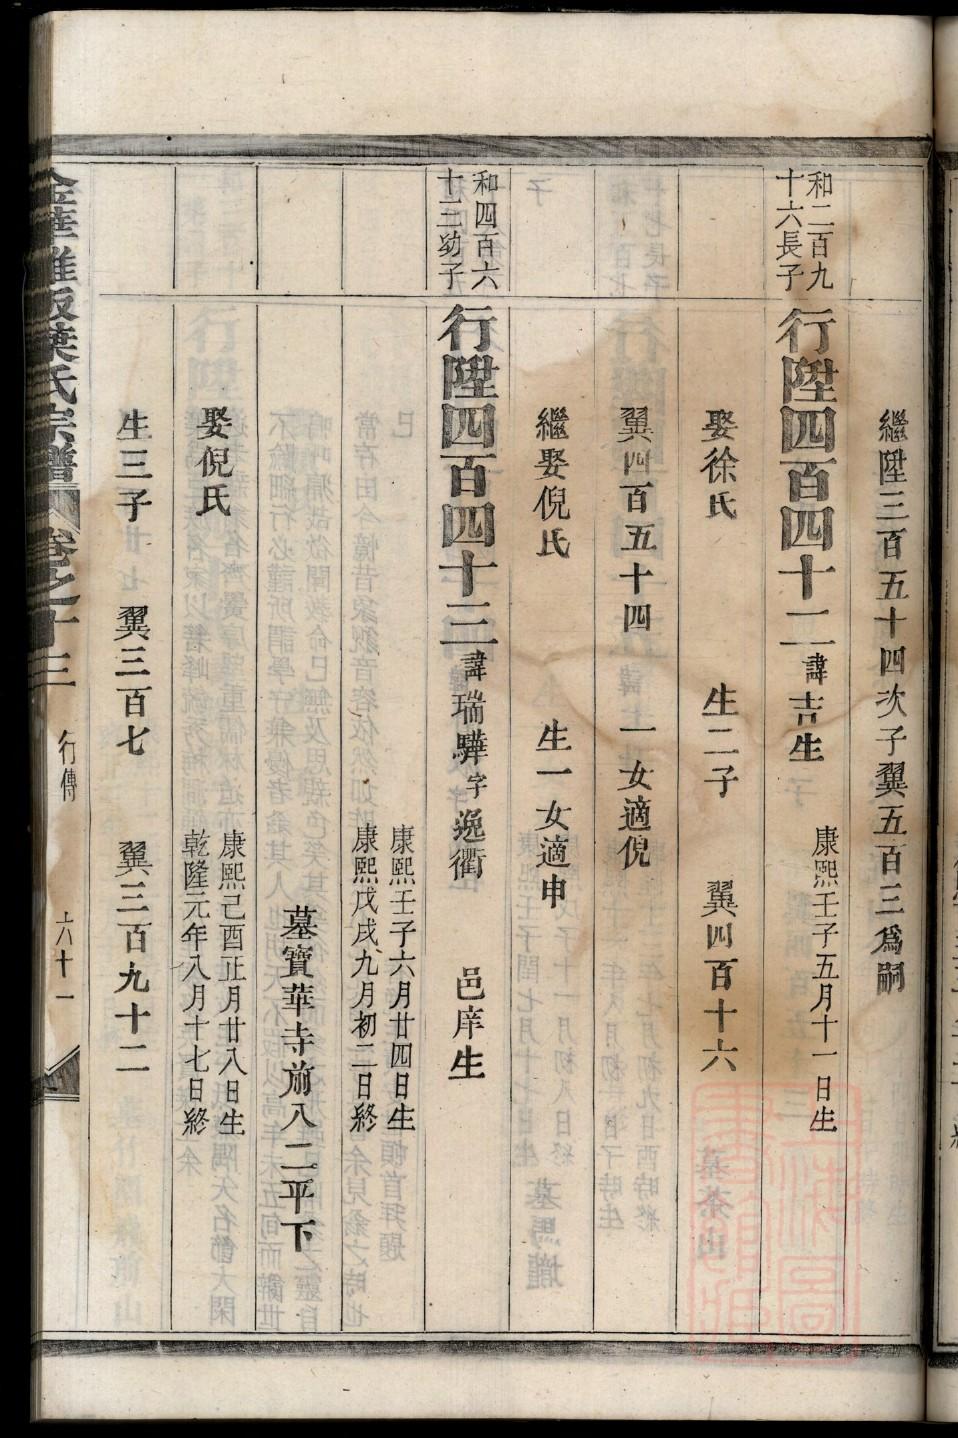 繼陞三百五十四次子翼五百三爲嗣
和二百九
十六長子
行陞四百四十二諱吉生
康熙壬子五月十一日生
娶徐氏 生二子 翼四百十六
翼四百五十四 一女適倪
繼娶倪氏 生一女適申
和四百六
十三幼子
行陞四百四十三諱瑞驊字逸衢 邑庠生
康熙壬子六月廿四日生
康熙戊戌九月初二日終
墓寶華寺前八二平下
娶倪氏
康熙己酉正月廿八日生
乾隆元年八月十七日終
生三子 翼三百七 翼三百九十二
金華雅畈葉氏宗譜 卷之十三 行傳 六十一